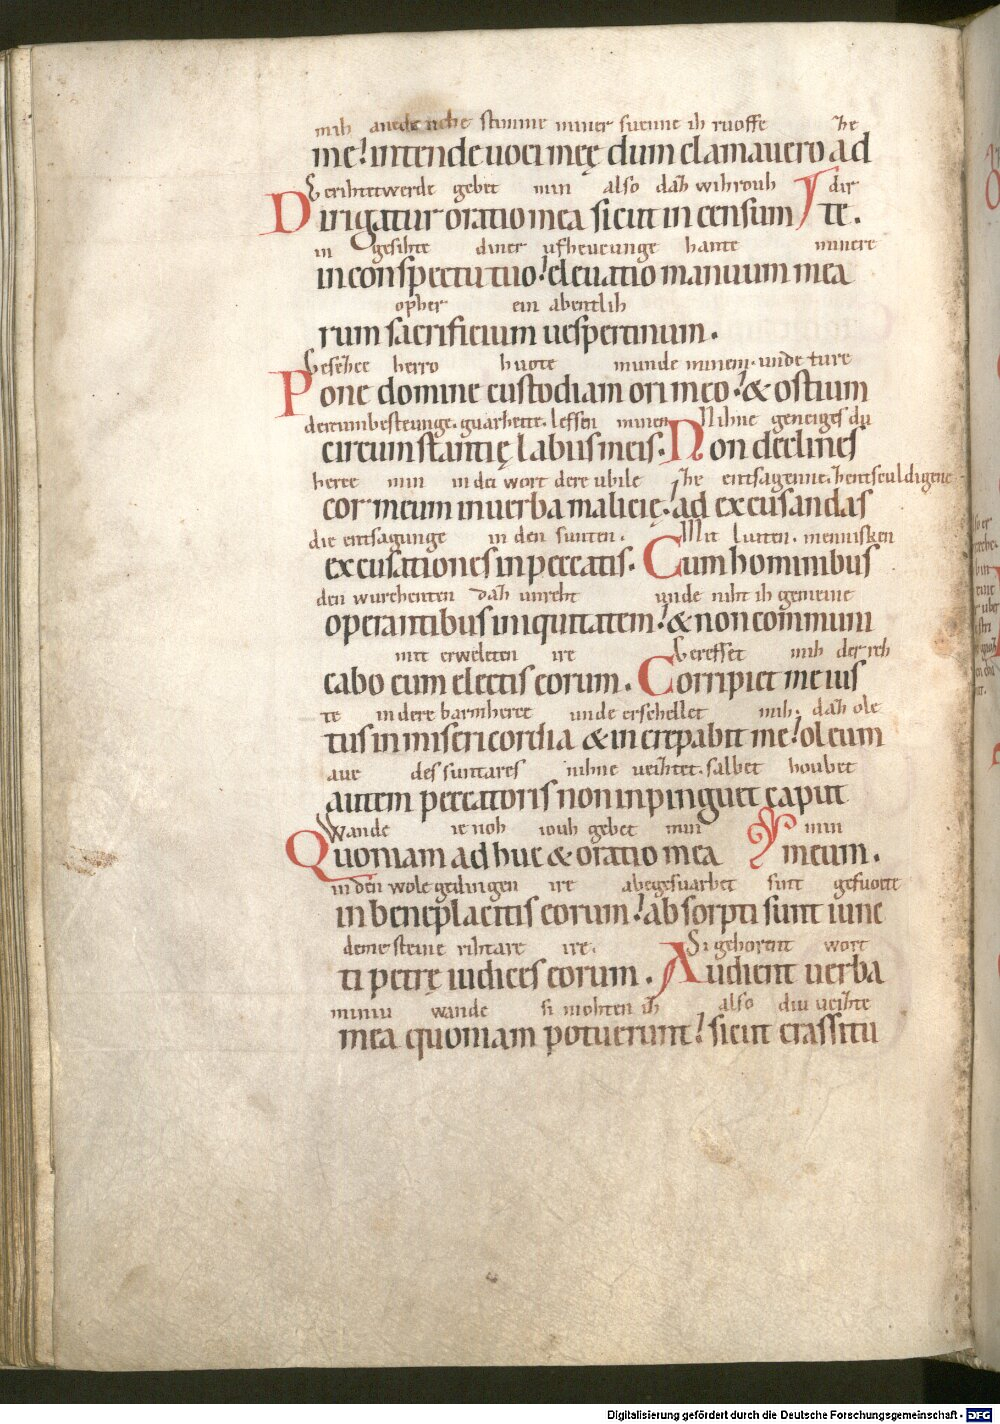 mih anede uche stimme miner suenne ih ruoffe he
me? intende uoci meę dum clamauero ad
Gerihtetwerde gebet min also dah wihrouh dir
Dirigatur oratio mea sicut incensum te.
in gesihte diner ufheueunge hante minere
in conspectu tuo? eleuatio manuum mea
opher ein abentlih
rum sacrificium uespertinum.
Gesezhee herro huote munde minem. unde ture
Pone domine custodiam ori meo? & ostium
dereumbesteunge. guarheite. leffen minen Nihne geneiges du
circumstantię labiis meis. Non declines
herce min in dei wort dere ubile he entsagenne. hentsculdigene
cor meum in uerba malicię? ad excusandas
die entsagunge in den sunten. Mit liuten. mennisken
excusationes in peccatis. Cum hominibus
den wurchenten dah unreht unde niht ih gemeine
operantibus iniquitatem? & non communi
mit erweleten ire Gereffet mih der reh
cabo cum electis eorum. Corripiet me ius
te in dere barmherce unde erschellet mih. dah ole
tus in misericordia & increpabit me? oleum
aue des suntares nihne ueihtet. salbet houbet
autem peccatoris non inpinguet caput
Wande ie noh iouh gebet min min
Quoniam adhuc & oratio mea meum.
in den wole gedingen ire abegesuarbet sint gefuocte
in beneplacitis eorum? absorpti sunt iunc
deme steine rihtare ire. Si gehorent wort
ti petrę iudices eorum. Audient uerba
miniu wande si mohten ih also diu ueihte
mea quoniam potuerunt? sicut crassitu
Digitalisierung gefördert durch die Deutsche Forschungsgemeinschaft - DFG